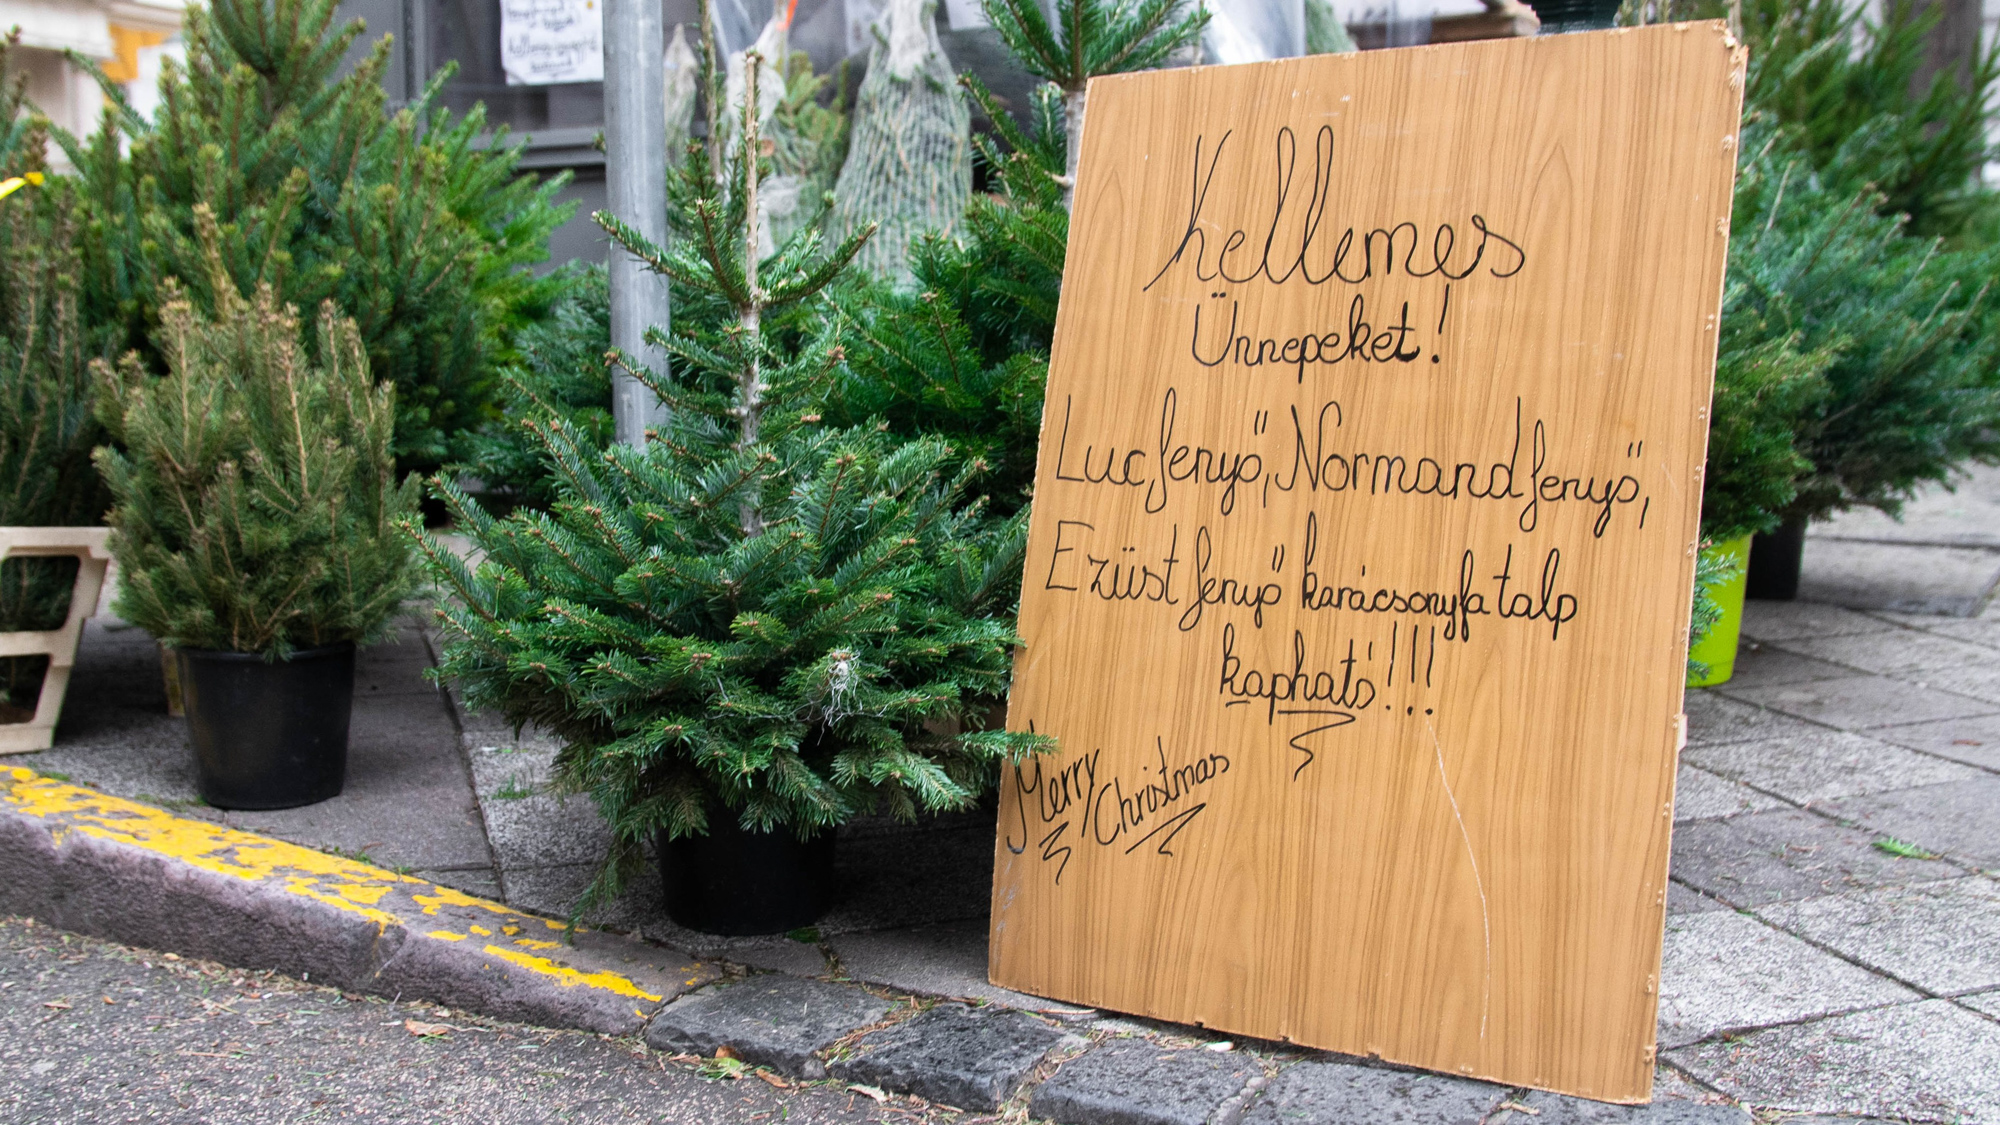 Kellemes
Ünnepeket!
Lucfenyő, Normandfenyő,
Ezüstfenyő karácsonyfatalp
kapható!!!
Merry
Christmas